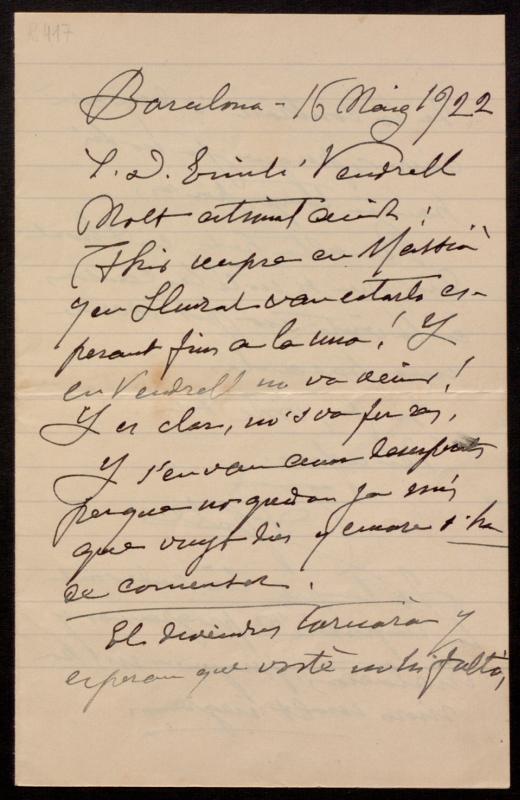 R. 417
Barcelona - 16 Maig 1922
S. D. Emili Vendrell
Molt estimat amich!
Ahir vespre en Massià
y en Llurat van estarlo es-
perant fins a la una! Y
en Vendrell no va venir!
Y es clar, no's va fer res,
Y s'en van anar desesperats
perque no quedan ja més
que vuyt dies y encare s'ha
de comensar.
El divendres tornarán y
esperan que vosté no hi faltá,